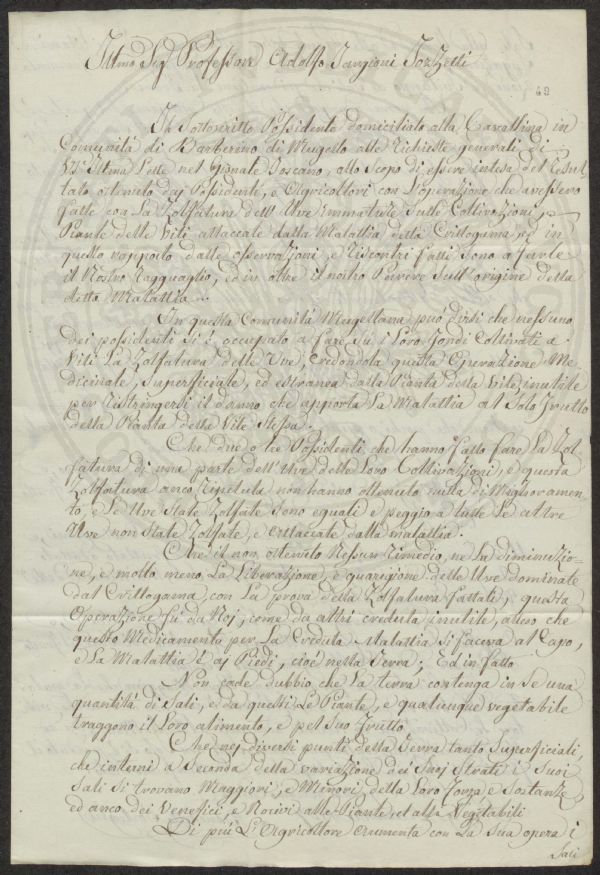 Illmo Sig Professore Adolfo Targioni Tozzetti
49
Il Sottoscritto Possidente domiciliato alla Cavallina in
Comunità di Barberino di Mugello alle Richieste generali di
VS Illma Lette nel Gionale Toscano, allo scopo di essere intesa del Resul
tato ottenuto dai Possidenti, e Agricoltori con L'operazione che avessero
fatte con La Zolfatura dell'Uve immature Sulle Coltivazioni,
Piante delle Viti attaccate dalla Malattia della Crittogama ed in
questo rapporto dalle osservazioni, e Riscontri fatti Sono a farle
il Nostro Ragguaglio, ed in oltre il nostro Parere Sull'origine della
detta Malattia.
In questa Comunità Mugellana può dirsi che nessuno
dei possidenti Si è occupato a fare Su i Loro fondi Coltivati a
Viti La Zolfatura delle Uve, credendola quella Operazione Me
dicinale, Superficiale, ed estranea dalla Pianta della Vite, inutile
per Ristringersi il danno che apporta La Malattia al Solo frutto
della Pianta della Vite Stessa.
Che due o tre Possidenti che hanno fatto fare La Zol
fatura di una parte dell'Uve delle Loro Coltivazioni, e questa
Zolfatura anco Ripetuta non hanno ottenuto nulla di Miglioramen
to, e Le Uve State Zolfate Sono equali e peggio a tutte Le altre
Uve non State Zolfate, e attaccate dalla malattia.
Che il non ottenuto Nessun Rimedio, ne La diminuzio=
ne, e molto meno La Liberazione, e guarigione delle Uve dominate
dal Crittogama con La prova della Zolfatura fattali, questa
Operazione fu da Noj, come da altri creduta inutile, atteso che
questo Medicamento per La Creduta Malattia Si faceva al Capo,
e La Malattia è aj Piedi, cioè nella Terra; Ed in fatto
Non cade dubbio che La terra contenga in Se una
quantità di Sali, e da questi Le Piante, e qualunque vegetabile
traggono il Loro alimento, e pel Suo frutto
Che nej diversi punti della Terra tanto Superficiali,
che interni a Seconda della variazione dei Suoj Strati i Suoi
Sali Si trovano Maggiori, e Minori, della Loro forza e Sostanze,
ed anco dei Venefici, e Nocivi alle Piante, et alla Vegetabili
Di più L'Agricoltore aumenta con La Sua opera i
Sali